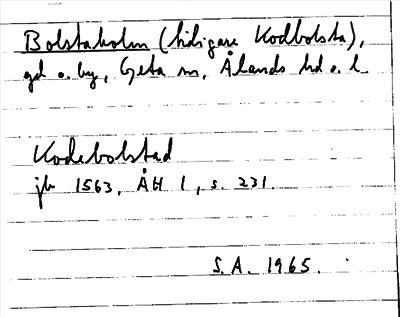 Bolstaholm (tidigare Kodbolsta),
gd o. by, Geta sn, Ålands hd o. l.
Kodebolstad
jb 1563, ÅH 1, s. 231.
S.A. 1965.